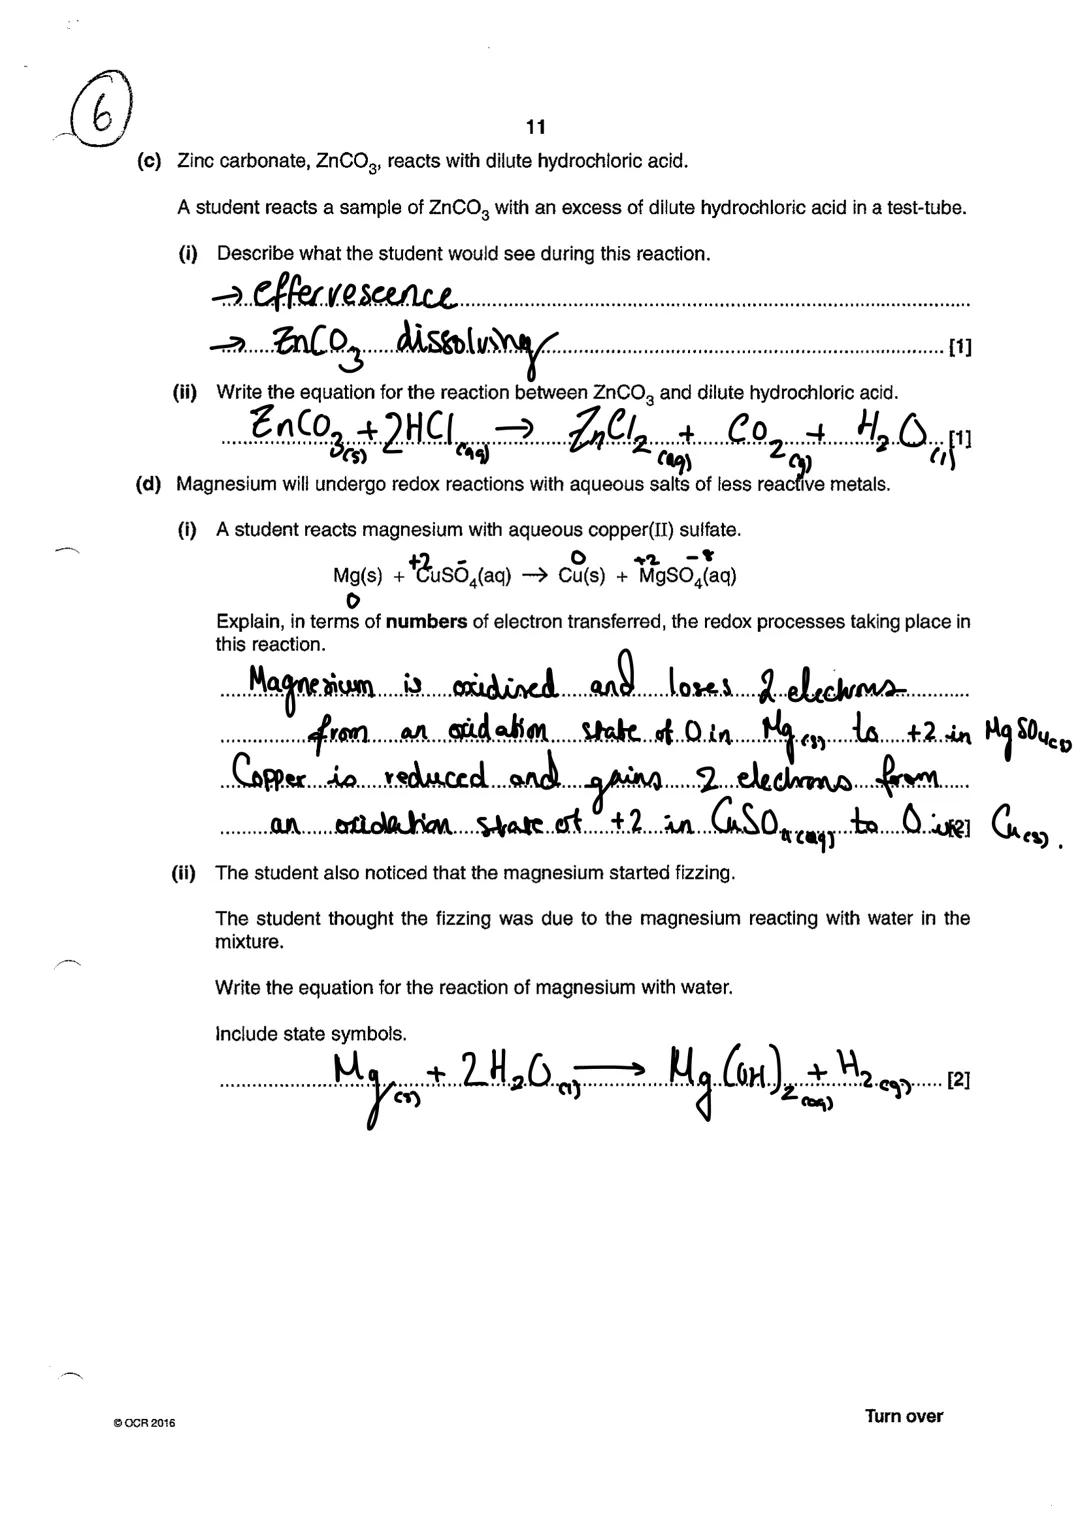 6
11
(c) Zinc carbonate, ZnCO₃, reacts with dilute hydrochloric acid.
A student reacts a sample of ZnCO₃ with an excess of dilute hydrochloric acid in a test-tube.
(i) Describe what the student would see during this reaction.
→ effervescence
→ ZnCO₃ dissolving [1]
(ii) Write the equation for the reaction between ZnCO₃ and dilute hydrochloric acid.
ZnCO₃(s) + 2HCl(aq) → ZnCl₂(aq) + CO₂(g) + H₂O(l) [1]
(d) Magnesium will undergo redox reactions with aqueous salts of less reactive metals.
(i) A student reacts magnesium with aqueous copper(II) sulfate.
+2 - 0 +2 -8
Mg(s) + CuSO₄(aq) → Cu(s) + MgSO₄(aq)
0
Explain, in terms of numbers of electron transferred, the redox processes taking place in
this reaction.
Magnesium is oxidised and loses 2 electrons
from an oxidation state of 0 in Mg(s) to +2 in MgSO₄(s)
Copper is reduced and gains 2 electrons from
an oxidation state of +2 in CuSO₄(aq) to 0 in Cu(s). [2]
(ii) The student also noticed that the magnesium started fizzing.
The student thought the fizzing was due to the magnesium reacting with water in the
mixture.
Write the equation for the reaction of magnesium with water.
Include state symbols.
Mg(s) + 2H₂O(l) → Mg(OH)₂(aq) + H₂(g) [2]
© OCR 2016
Turn over